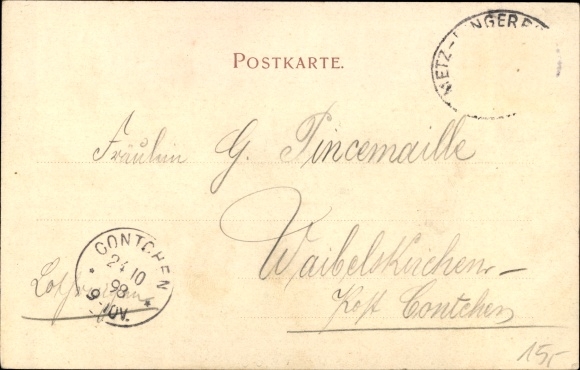 POSTKARTE.
METZ-
Fräulein G. Pincemaille
Waibelskirchen-
Post Contchen
CONTCHEN
24 10
98
9-10V.
15,-